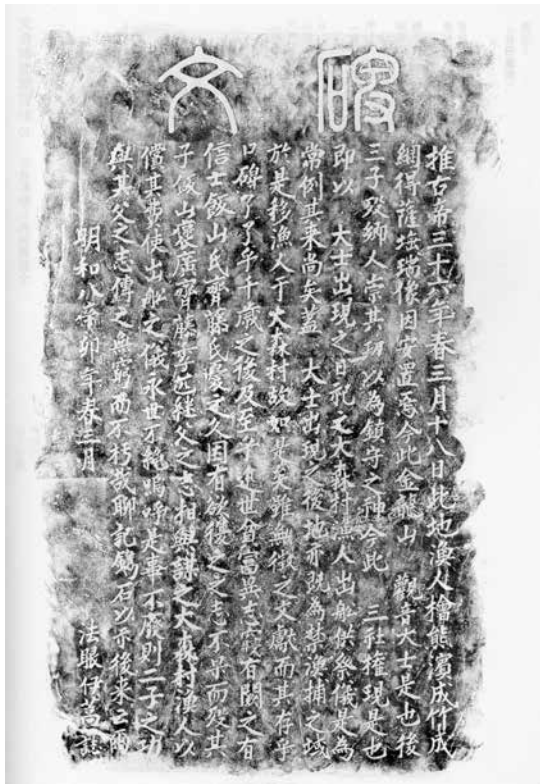 碑文
推古帝三十六年春三月十八日此地漁人檜熊濱成竹成
網得薩埵瑞像因安置焉今此金龍山 觀音大士是也後
三子歿鄉人崇其功以為鎮守之神今此 三社權現是也
即以 大士出現之日祀之大森村漁人出船供祭儀是為
當例其來尚矣蓋 大士出現之後此地亦既為禁漁捕之域
於是移漁人于大森村故如是矣雖無徵之文獻而其存乎
口碑了了乎千歲之後及至世貧富異志有闕之有
信士飯山氏齊藤氏憂之久因有欲復之之志不果而歿其
子飯山齊藤繼父之志相與謀之大森村漁人以
價其費使出船之儀永世不絕嗚呼是事不廢則二子之功
與其父之志傳之無窮而不朽哉聊記鐫石以示後來云爾
明和八辛卯年春三月
法眼